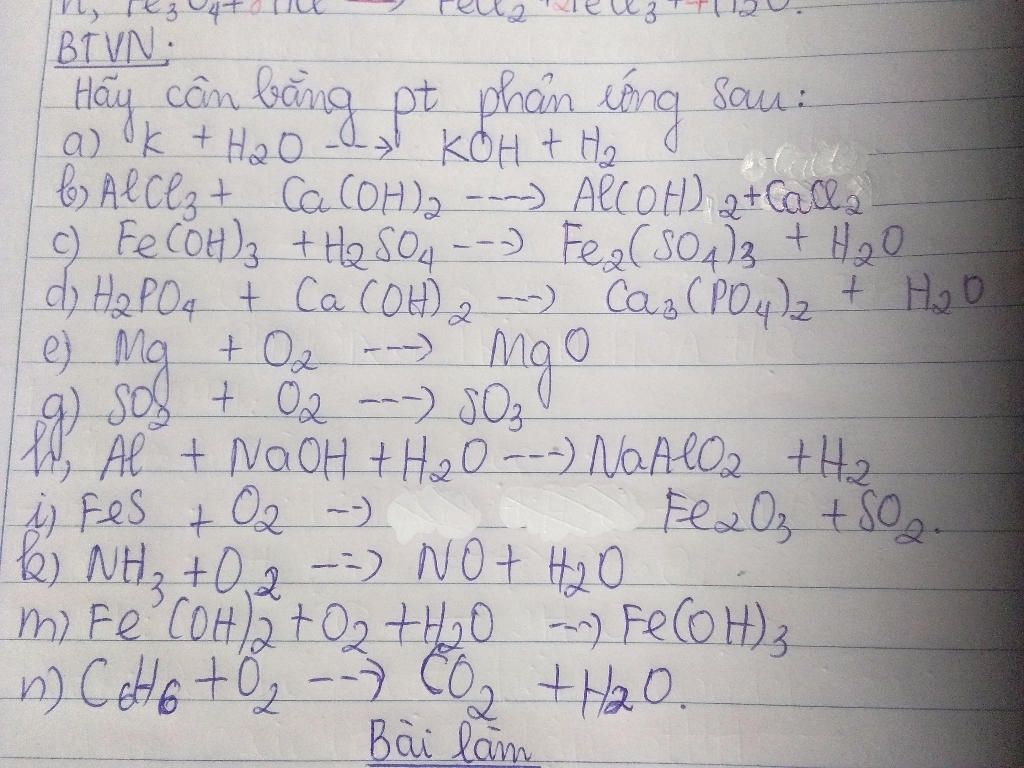 n, Fe3O4 + 8HCl ---> FeCl2 + 2FeCl3 + 4H2O.
BTVN:
Hãy cân bằng pt phản ứng sau:
a) K + H2O ---> KOH + H2
b) AlCl3 + Ca(OH)2 ----> Al(OH)2 + CaCl2
c) Fe(OH)3 + H2SO4 ---> Fe2(SO4)3 + H2O
d) H2PO4 + Ca(OH)2 ---> Ca3(PO4)2 + H2O
e) Mg + O2 ---> MgO
g) SO2 + O2 ---> SO3
h, Al + NaOH + H2O ---> NaAlO2 + H2
i) FeS + O2 --> Fe2O3 + SO2.
k) NH3 + O2 ---> NO + H2O
m) Fe(OH)2 + O2 + H2O ---> Fe(OH)3
n) C6H6 + O2 ---> CO2 + H2O.
Bài làm